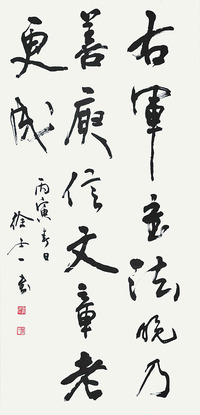 右军书法晚乃
善庾信文章老
更成
丙寅春日
徐士一书